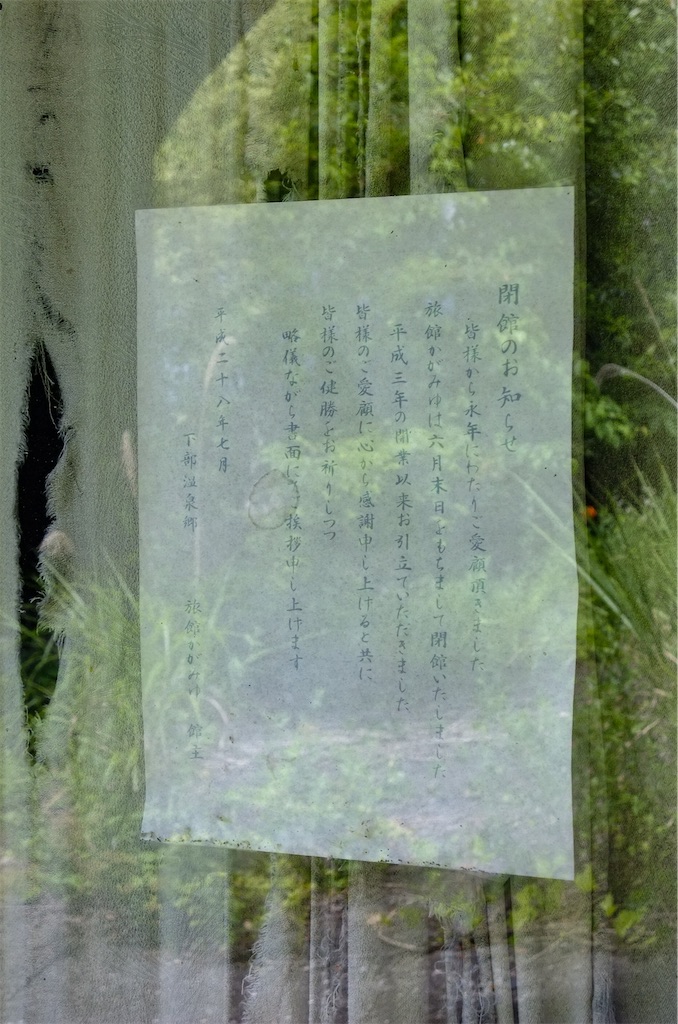 閉館のお知らせ
皆様から永年にわたりご愛顧頂きました
旅館かがみゆは六月末日をもちまして閉館いたしました
平成三年の開業以来お引立ていただきました
皆様のご愛顧に心から感謝申し上げると共に
皆様のご健勝をお祈りしつつ
略儀ながら書面にてご挨拶申し上げます
平成二十八年七月
下部温泉郷 旅館かがみゆ 館主